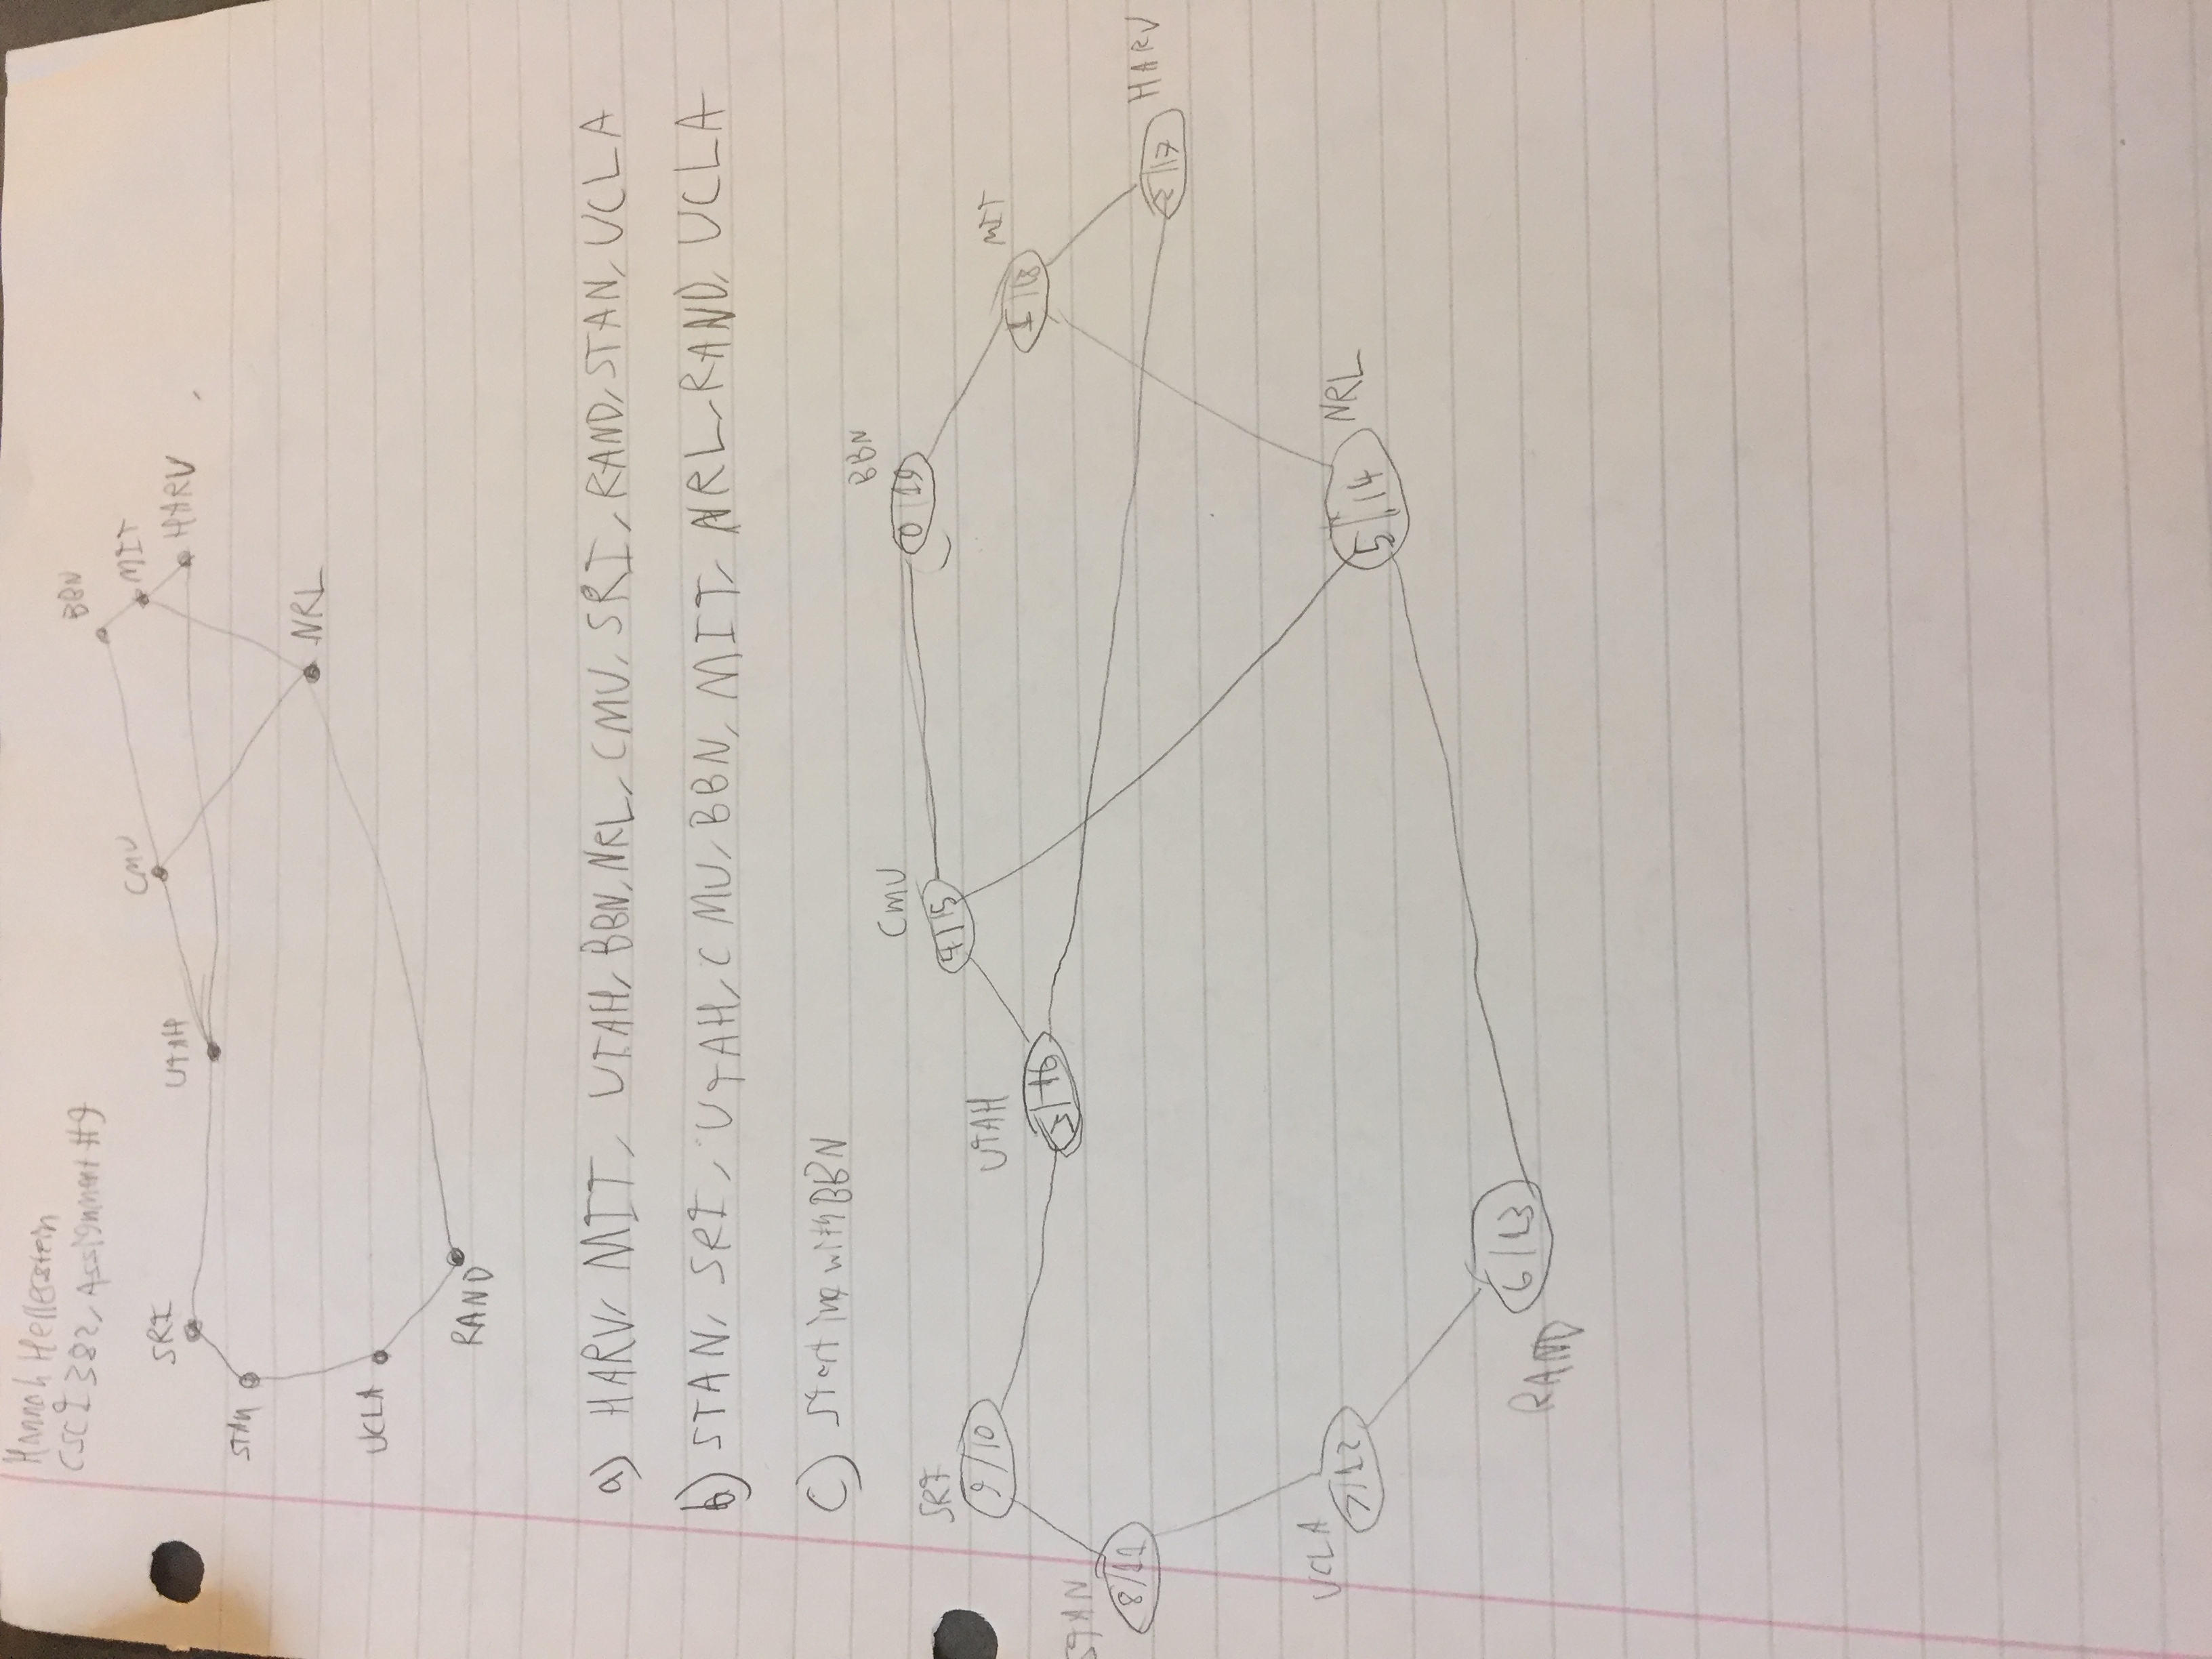 Hannah Hellerstein
CSCI 382, Assignment #9
BBN
CMU
MIT
SRI
UTAH
HARV
STAN
NRL
UCLA
RAND
a) HARV, MIT, UTAH, BBN, NRL, CMU, SRI, RAND, STAN, UCLA
b) STAN, SRI, UTAH, CMU, BBN, MIT, NRL, RAND, UCLA
c) Starting with BBN
BBN
CMU
0|19
SRI
4|15
UTAH
9/10
MIT
1|18
3|16
STAN
8/11
HARV
2|17
UCLA
7/12
NRL
5|14
RAND
6/13